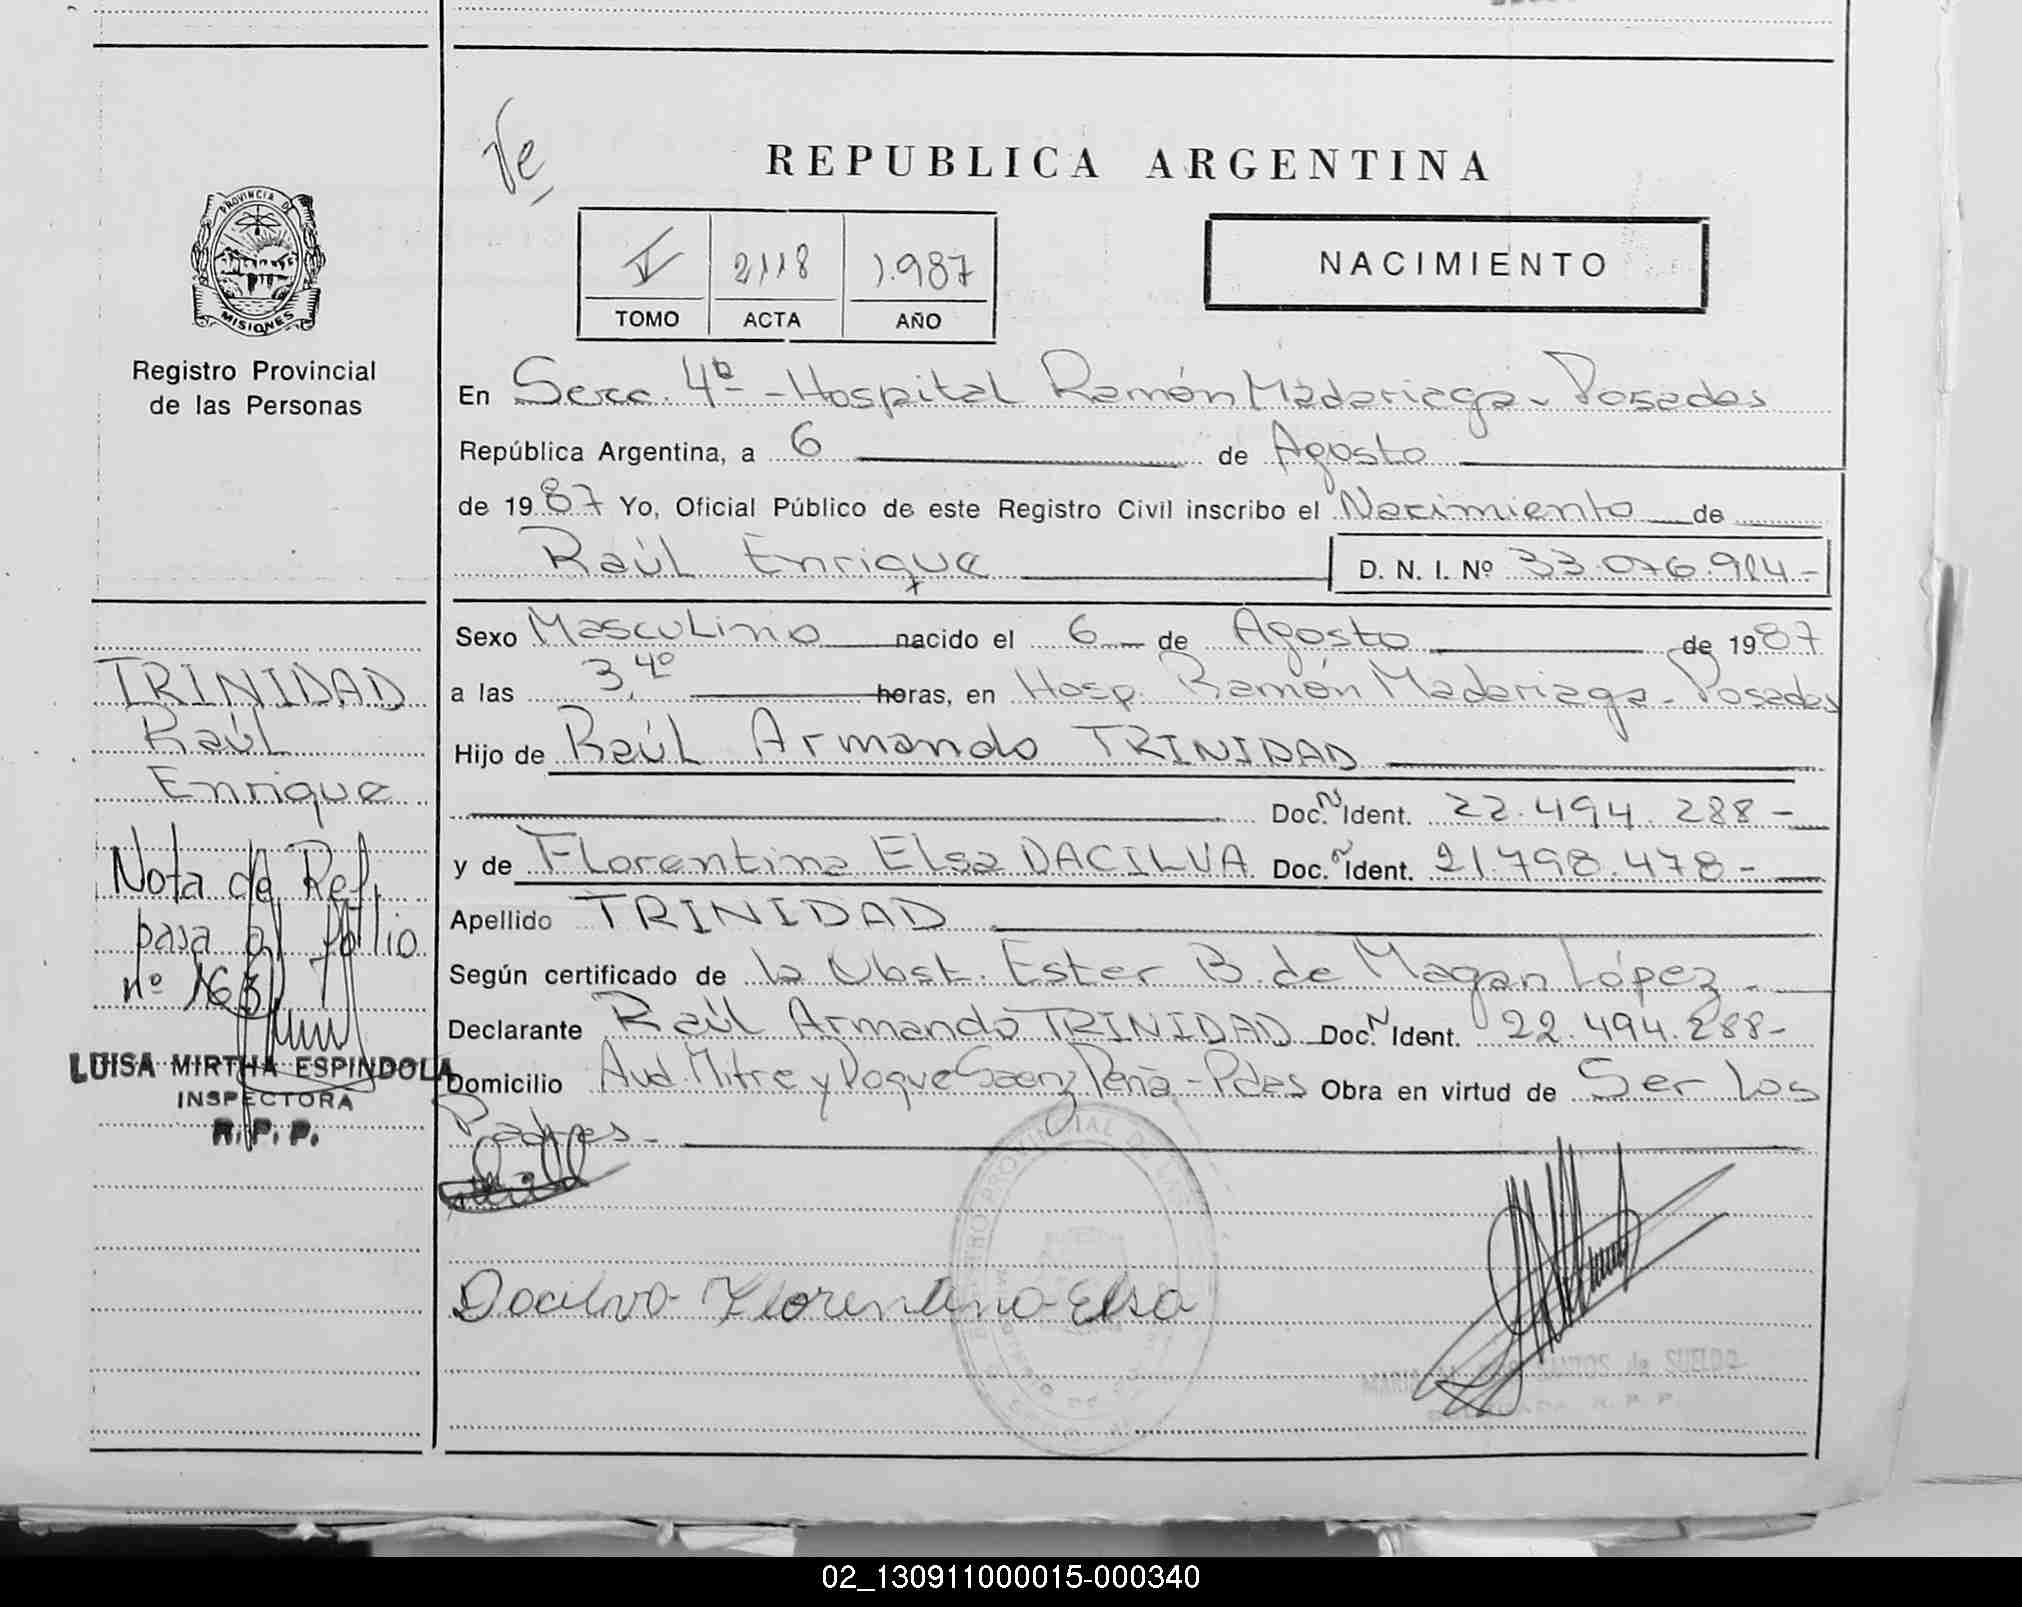 Ve
REPUBLICA ARGENTINA
V 2118 1.987
TOMO ACTA AÑO
NACIMIENTO
PROVINCIA DE
MISIONES
Registro Provincial
de las Personas
En Secc. 4ª - Hospital Ramón Madariaga - Posadas
República Argentina, a 6 de Agosto
de 1987 Yo, Oficial Público de este Registro Civil inscribo el Nacimiento de
Raúl Enrique D. N. I. Nº 33.076.914-
Sexo Masculino nacido el 6 de Agosto de 1987
a las 3,40 horas, en Hosp. Ramón Madariaga - Posadas
Hijo de Raúl Armando TRINIDAD
Doc. N Ident. 22.494.288-
y de Florentina Elsa DACILVA Doc. N Ident. 21.798.478-
Apellido TRINIDAD
Según certificado de la Obst. Ester B. de Magan López -
Declarante Raúl Armando TRINIDAD Doc. N Ident. 22.494.288-
Domicilio Avd. Mitre y Roque Saenz Peña - Pdas Obra en virtud de Ser los
Padres -
Dacilva Florentina Elsa
TRINIDAD
Raúl
Enrique
Nota de Ref.
pasa al folio
nº 163
LUISA MIRTHA ESPINDOLA
INSPECTORA
R. P. P.
02_130911000015-000340